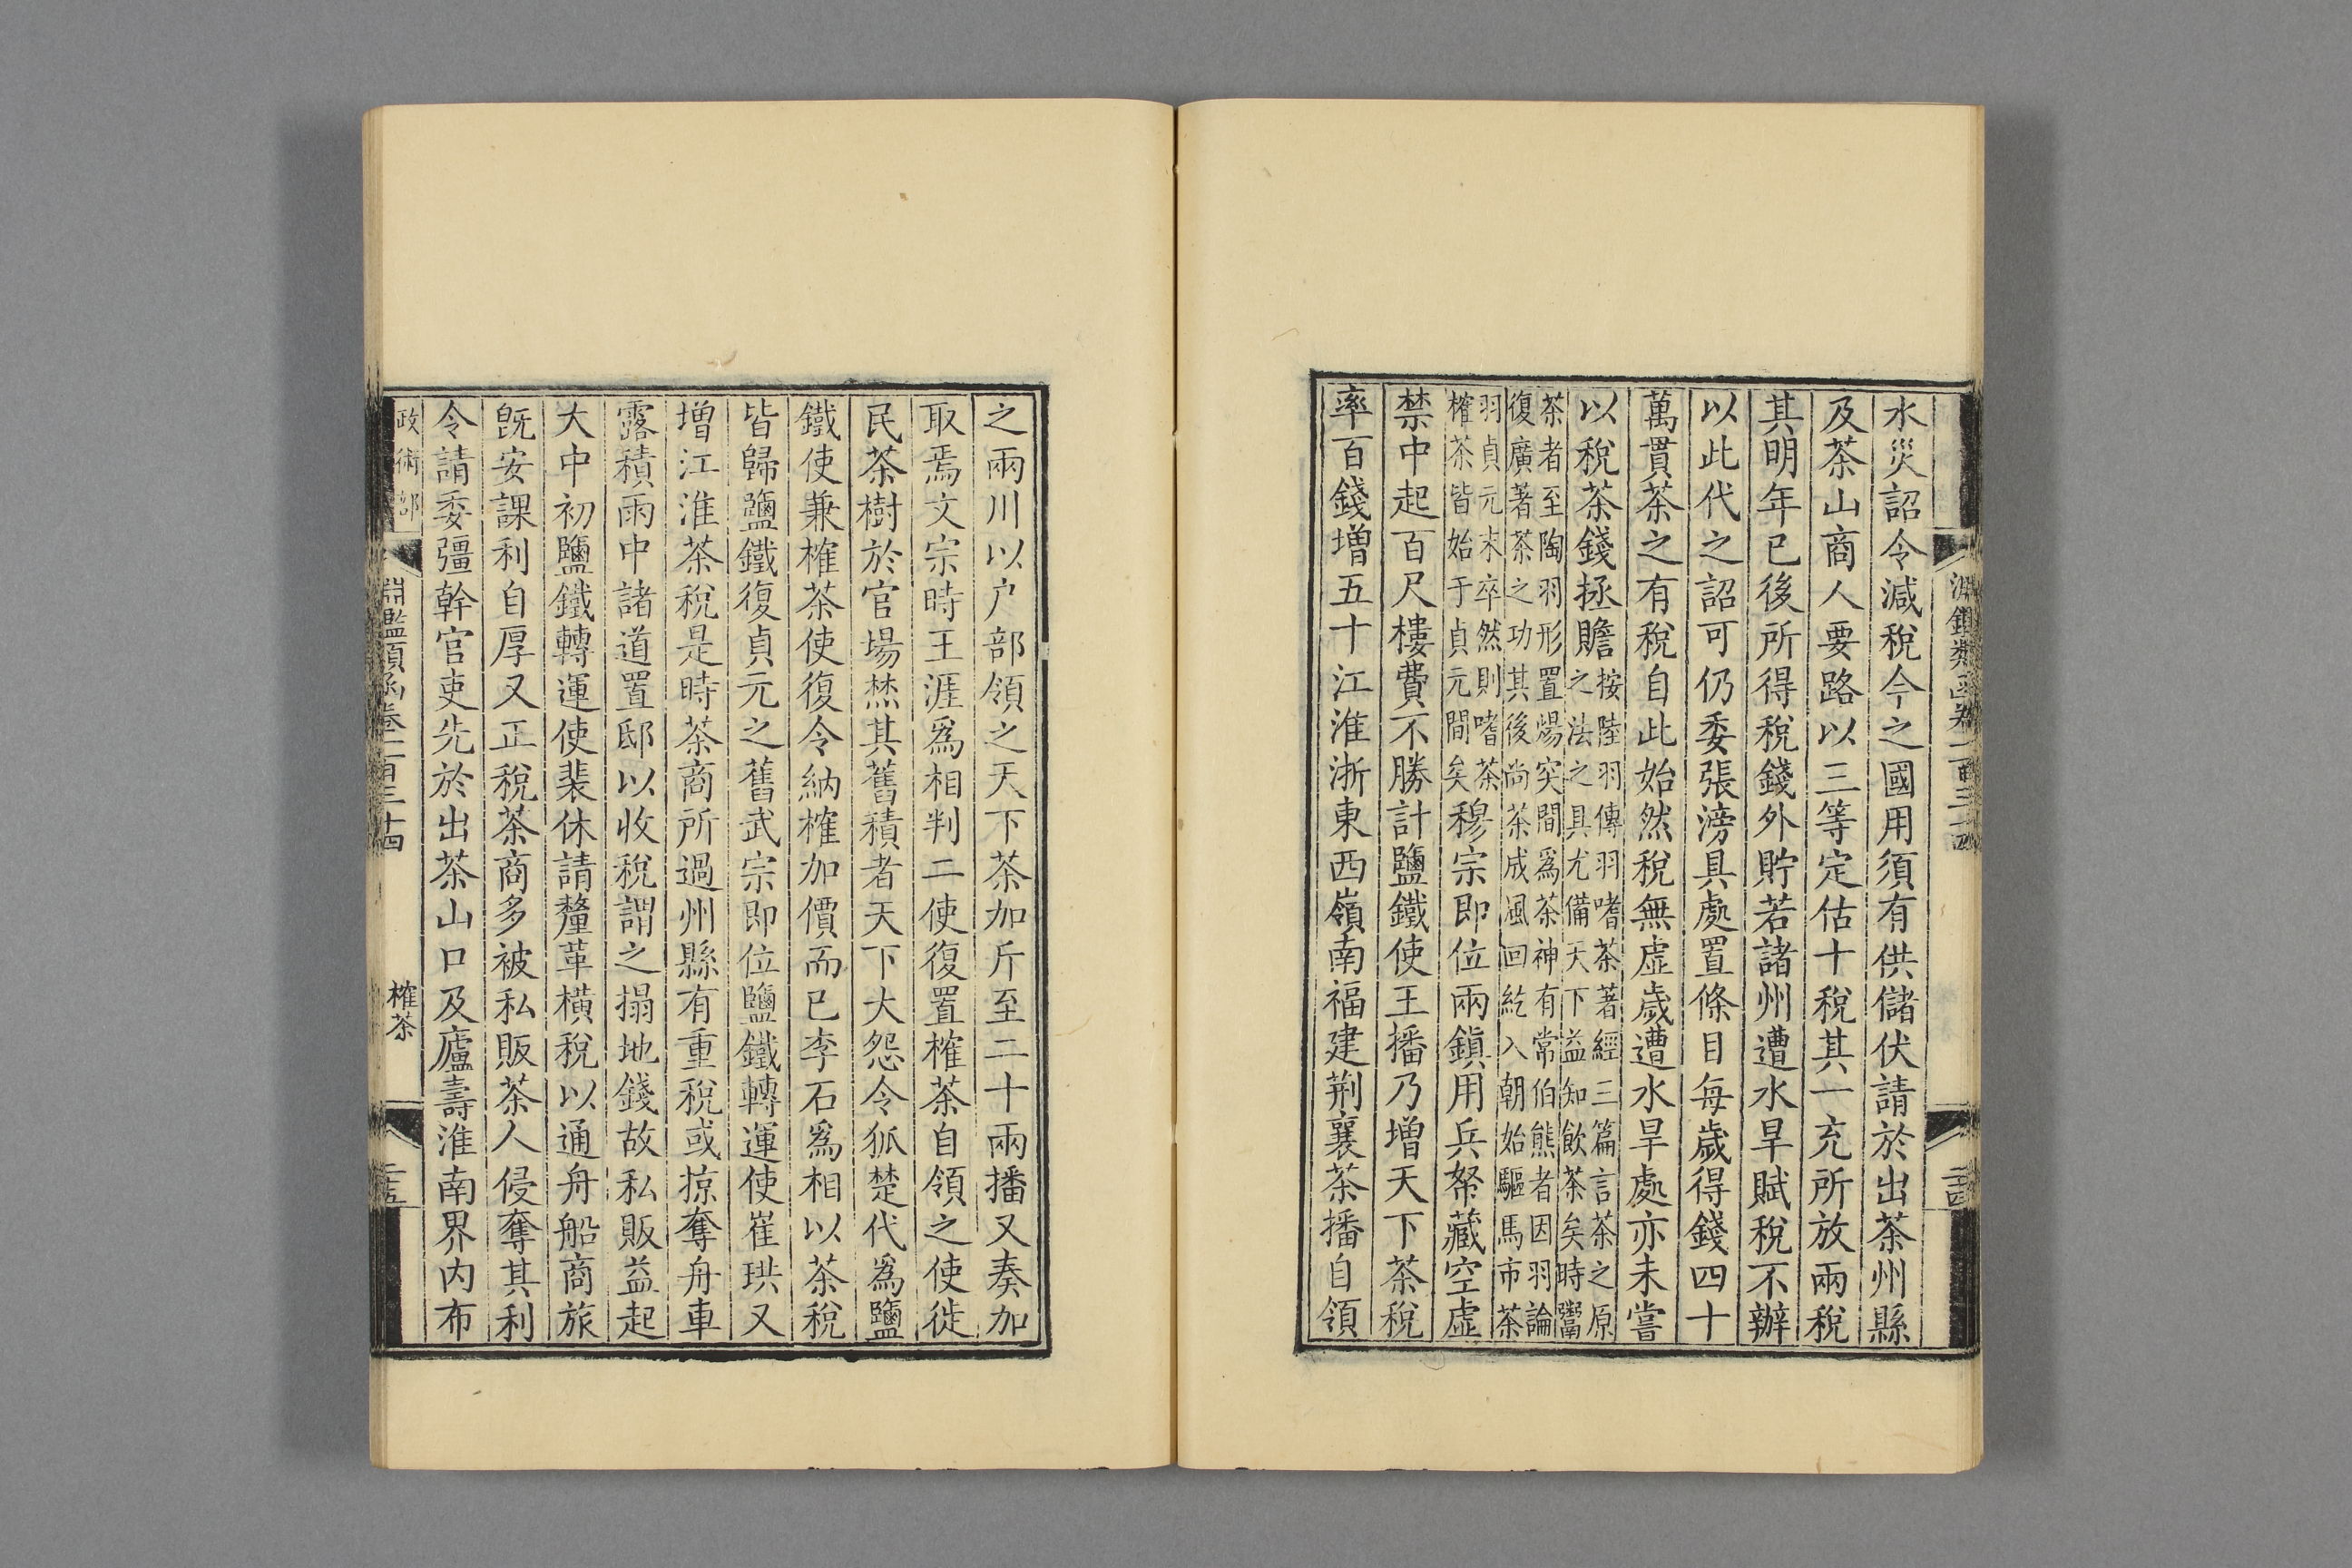 淵鑑類函卷一百三十四
二十四
水災詔令減稅今之國用須有供儲伏請於出茶州縣
及茶山商人要路以三等定估十稅其一充所放兩稅
其明年已後所得稅錢外貯若諸州遭水旱賦稅不辦
以此代之詔可仍委張滂具處置條目每歲得錢四十
萬貫茶之有稅自此始然稅無虛歲遭水旱處亦未嘗
以稅茶錢拯贍
按陸羽傳羽嗜茶著經三篇言茶之原
之法之具尤備天下益知飲茶矣時鬻
茶者至陶羽形置煬突間爲茶神有常伯熊者因羽論
復廣著茶之功其後尚茶成風回紇入朝始驅馬市茶
羽貞元末卒然則嗜茶
榷茶皆始于貞元間矣
穆宗即位兩鎮用兵帑藏空虛
禁中起百尺樓費不勝計鹽鐵使王播乃增天下茶稅
率百錢增五十江淮浙東西嶺南福建荆襄茶播自領
之兩川以户部領之天下茶加斤至二十兩播又奏加
取焉文宗時王涯爲相判二使復置榷茶自領之使徙
民茶樹於官場焚其舊積者天下大怨令狐楚代爲鹽
鐵使兼榷茶使復令納榷加價而已李石爲相以茶稅
皆歸鹽鐵復貞元之舊武宗即位鹽鐵轉運使崔珙又
增江淮茶稅是時茶商所過州縣有重稅或掠奪舟車
露積雨中諸道置邸以收稅謂之搨地錢故私販益起
大中初鹽鐵轉運使裴休請釐革橫稅以通舟船商旅
旣安課利自厚又正稅茶商多被私販茶人侵奪其利
令請委彊幹官吏先於出茶山口及廬壽淮南界內布
政術部
淵鑑類函卷一百三十四
榷茶
二十五